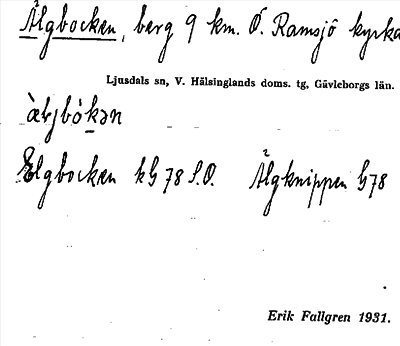 Älgbocken, berg 9 km. Ö. Ramsjö kyrka
Ljusdals sn, V. Hälsinglands doms. tg, Gävleborgs län.
Elgbocken kG 78 S.O. Älgknippen G78
Erik Fallgren 1931.